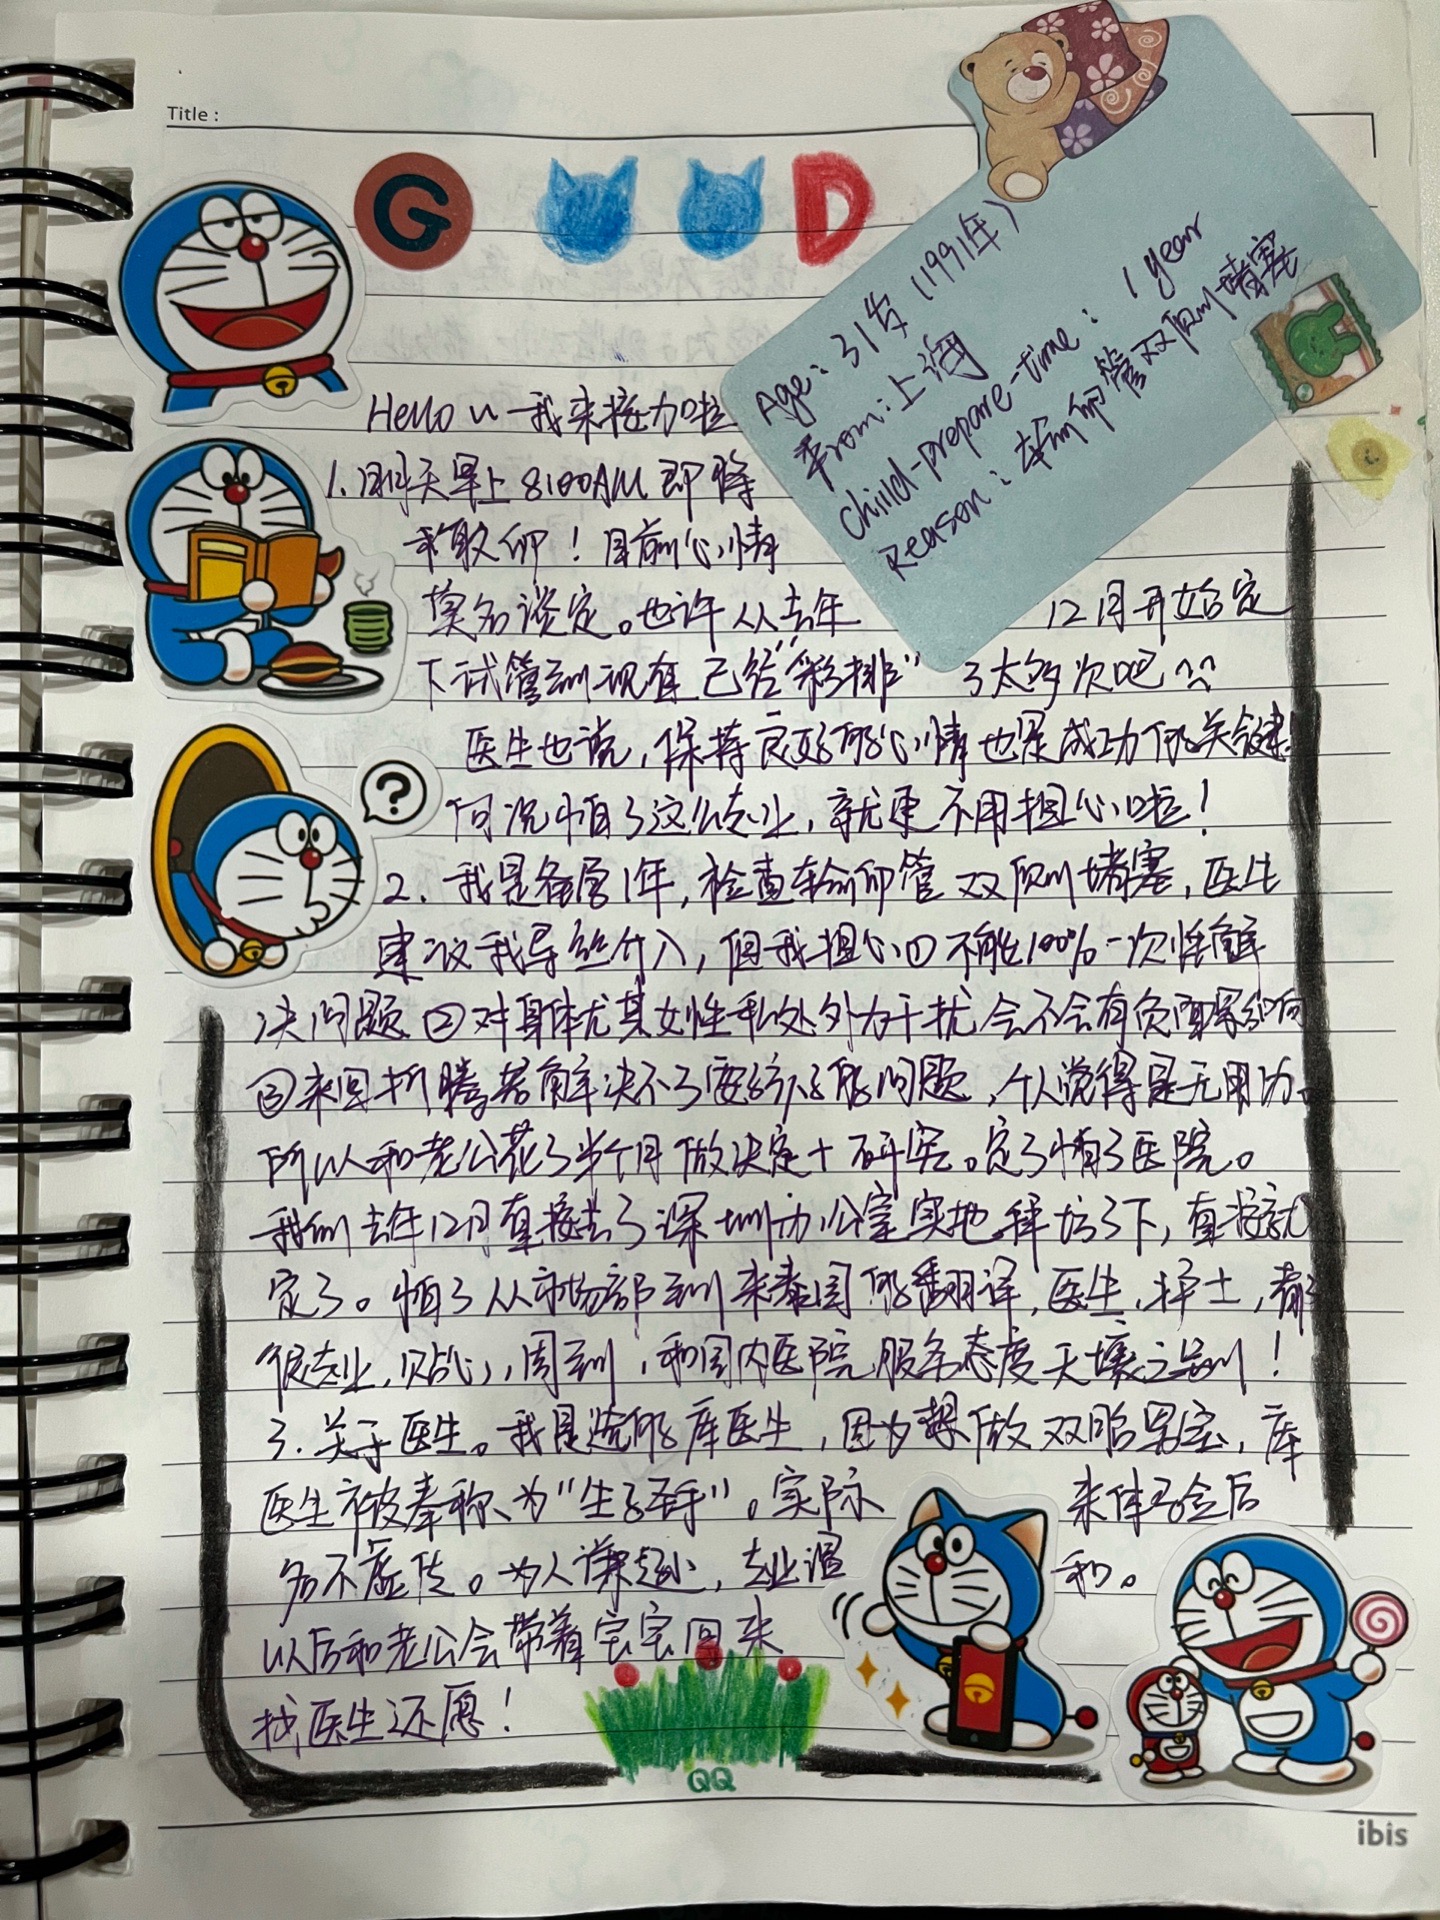 Title :
G D
Age: 31岁 (1991年)
From: 上海
Child-prepare-time: 1 year
Reason: 输卵管双侧堵塞
Hello~我来接力啦
1.明天早上8:00AM即将
取卵!目前心情
莫名淡定。也许从去年12月开始定
下试管到现在已经"彩排"了太多次吧^^
医生也说,保持良好的心情也是成功的关键
何况恒了这么专业,就更不用担心啦!
2.我是备孕1年,检查输卵管双侧堵塞,医生
建议我导丝介入,但我担心①不能100%一次性解
决问题②对身体尤其女性私处外力干扰会不会有负面影响
③来回折腾若解决不了要孩子的问题,个人觉得是无用功。
所以和老公花了半个月做决定+研究。定了恒了医院。
我们去年12月直接去了深圳办公室实地拜访了下,直接就
定了。恒了从市场部到来泰国的翻译,医生,护士,都
很专业,贴心,周到,和国内医院服务态度天壤之别!
3.关于医生。我是选的库医生,因为想做双胎男宝,库
医生被奉称为"生子圣手"。实际来体验后
名不虚传。为人谦逊,专业温和。
以后和老公会带着宝宝回来
找医生还愿!
QQ
ibis